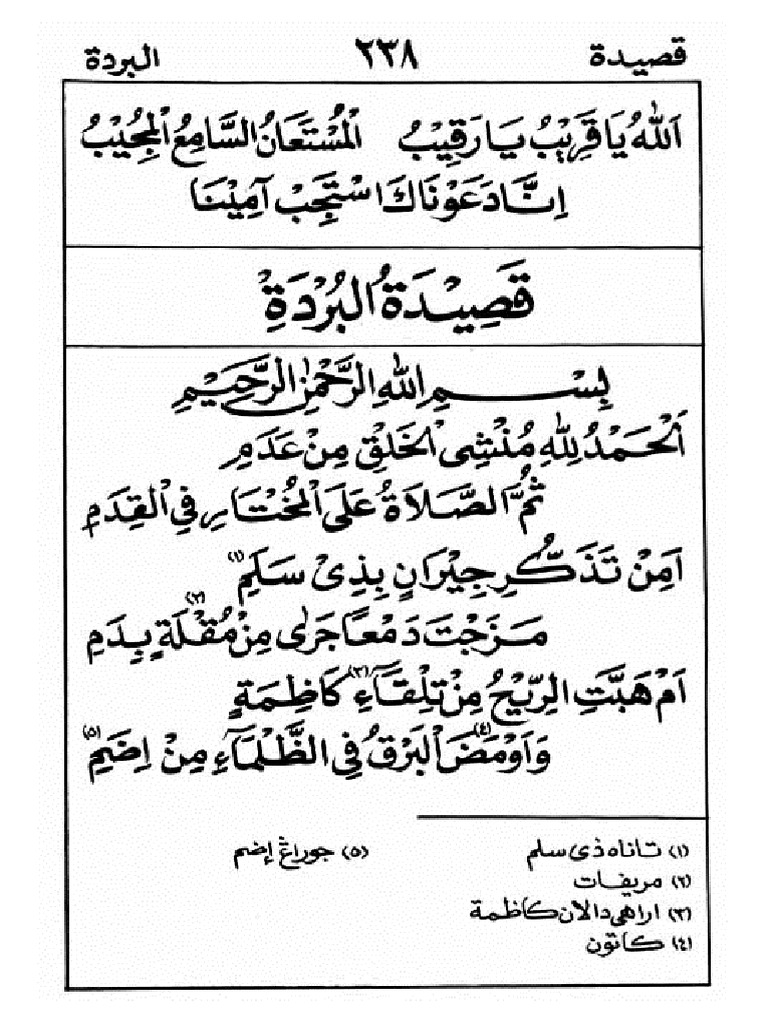 قصيدة ٢٣٨ البردة
اَللّٰهُ يَا قَرِيْبُ يَا رَقِيْبُ اَلْمُسْتَعَانُ السَّامِعُ الْمُجِيْبُ
اِنَّا دَعَوْنَاكَ اسْتَجِبْ آمِيْنَا
قَصِيْدَةُ الْبُرْدَةِ
بِسْمِ اللّٰهِ الرَّحْمٰنِ الرَّحِيْمِ
اَلْحَمْدُ لِلّٰهِ مُنْشِى الْخَلْقِ مِنْ عَدَمِ
ثُمَّ الصَّلَاةُ عَلَى الْمُخْتَارِ فِى الْقِدَمِ
اَمِنْ تَذَكُّرِ جِيْرَانٍ بِذِىْ سَلَمِ (١)
مَزَجْتَ دَمْعًا جَرٰى مِنْ مُقْلَةٍ (٢) بِدَمِ
اَمْ هَبَّتِ الرِّيْحُ مِنْ تِلْقَآءِ (٣) كَاظِمَةٍ
وَاَوْمَضَ (٤) الْبَرْقُ فِى الظَّلْمَآءِ مِنْ اِضَمِ (٥)
(١) تاناه ذى سلم
(٢) مريفات
(٣) اراهى دالان كاظمة
(٤) كاتون
(٥) جوراغ إضم